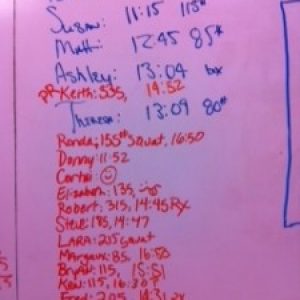 Susan: 11:15 115#
Matt: 12:45 85#
Ashley: 13:04 box
PR Keith: 535, 14:52
Theresa: 13:09 80#
Ronda, 155# squat, 16:50
Donny: 11:52
Elizabeth: 135,
Robert, 315, 14:45 Rx
Steve, 185, 14:47
LARA: 205 squat
Margaux: 85, 16:58
Bryan: 115, 15:51
Ken: 115, 16:30?
Fred: 205, 14:31 rx